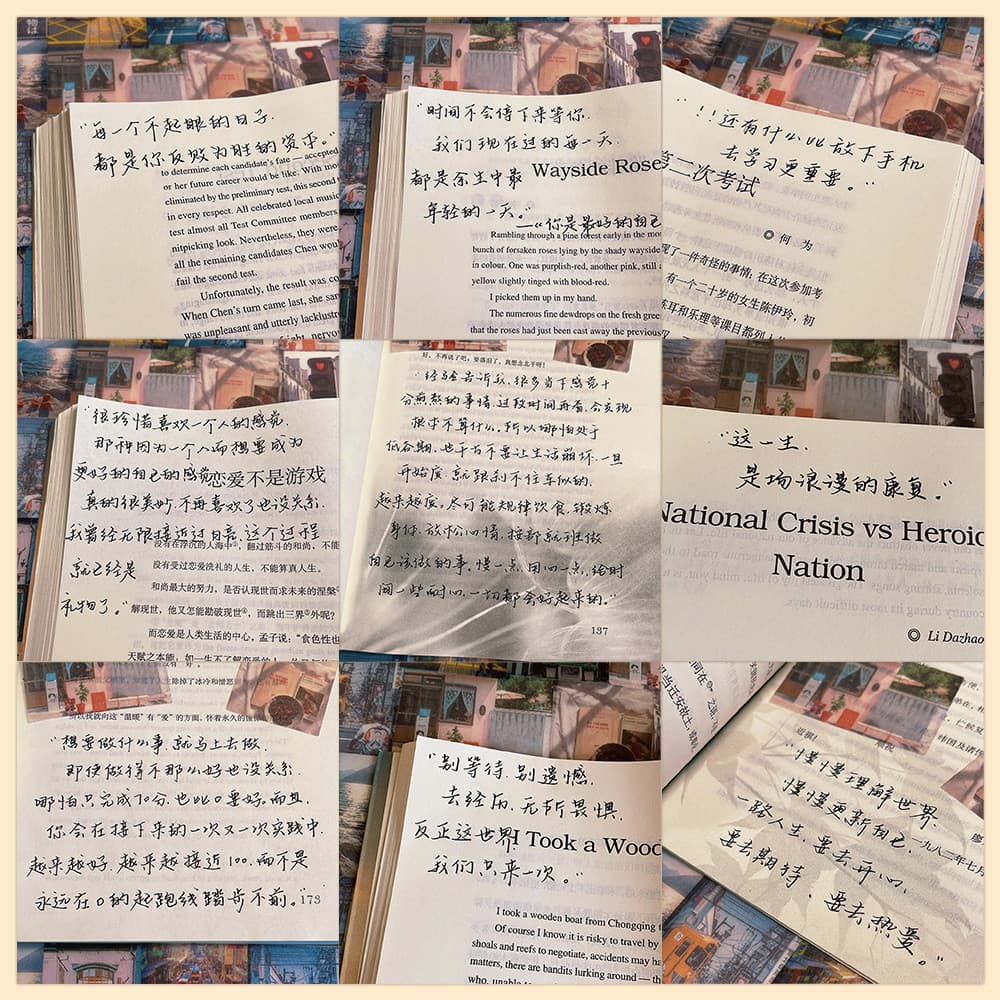 “每一个不起眼的日子.
都是你反败为胜的资本。”
to determine each candidate's fate — accepted
or her future career would be like. With mo
eliminated by the preliminary test, this second
in every respect. All celebrated local music
test almost all Test Committee members
nitpicking look. Nevertheless, they were
all the remaining candidates Chen wou
fail the second test.
Unfortunately, the result was co
When Chen's turn came last, she sar
was unpleasant and utterly lacklustr
“时间不会停下来等你.
我们现在过的每一天.
都是余生中最
Wayside Rose
年轻的一天。”
—《你是最好的自己
Rambling through a pine forest early in the mor
bunch of forsaken roses lying by the shady wayside
in colour. One was purplish-red, another pink, still a
yellow slightly tinged with blood-red.
I picked them up in my hand.
The numerous fine dewdrops on the fresh gree
that the roses had just been cast away the previous
“!!还有什么比放下手机
去学习更重要。”
第二次考试
◎ 何 为
现了一件奇怪的事情:在这次参加考
有一个二十岁的女生陈伊玲,初
练耳和乐理等课目都列入
“很珍惜喜欢一个人的感觉.
那种因为一个人而想要成为
更好的自己的感觉
恋爱不是游戏
真的很美妙.不再喜欢了也没关系.
我曾经无限接近过月亮.这个过程
没有在浮沉的人海中,翻过筋斗的和尚,不能
就已经是
没有受过恋爱洗礼的人生,不能算真人生。
和尚最大的努力,是否认现世而求未来的涅槃
礼物了。”
解现世,他又怎能勘破现世,而跳出三界外呢?
而恋爱是人类生活的中心,孟子说:“食色性也
天赋之本能,如一生不了解恋爱的人
好,不再说了吧,要落泪了,真想念北平呀!
“经验告诉我.很多当下感觉十
分煎熬的事情.过段时间再看.会发现
根本不算什么。所以哪怕处于
低谷期.也千万不要让生活崩坏.一旦
开始废.就跟刹不住车似的.
越来越废。尽可能规律饮食.锻炼
身体.放松心情.按部就班做
自己该做的事。慢一点.用心一点.给时
间一些耐心.一切都会好起来的。”
137
“这一生.
是场浪漫的康复。”
National Crisis vs Heroic
Nation
◎ Li Dazhao
所以我就向这“温暖”有“爱”的方面,怀着永久的憧憬
“想要做什么事.就马上去做.
即使做得不那么好也没关系.
哪怕只完成70分.也比0要好。而且.
你会在接下来的一次又一次实践中.
越来越好.越来越接近100.而不是
永远在0的起跑线踏步不前。”
173
“别等待.别遗憾.
去经历.无所畏惧.
反正这世界
I Took a Wood
我们只来一次。”
I took a wooden boat from Chongqing
Of course I know it is risky to travel by
shoals and reefs to negotiate, accidents may ha
matters, there are bandits lurking around — th
“慢慢理解世界.
慢慢更新自己.
一九八二年七月
路人生.要去开心.
要去期待.要去热爱。”